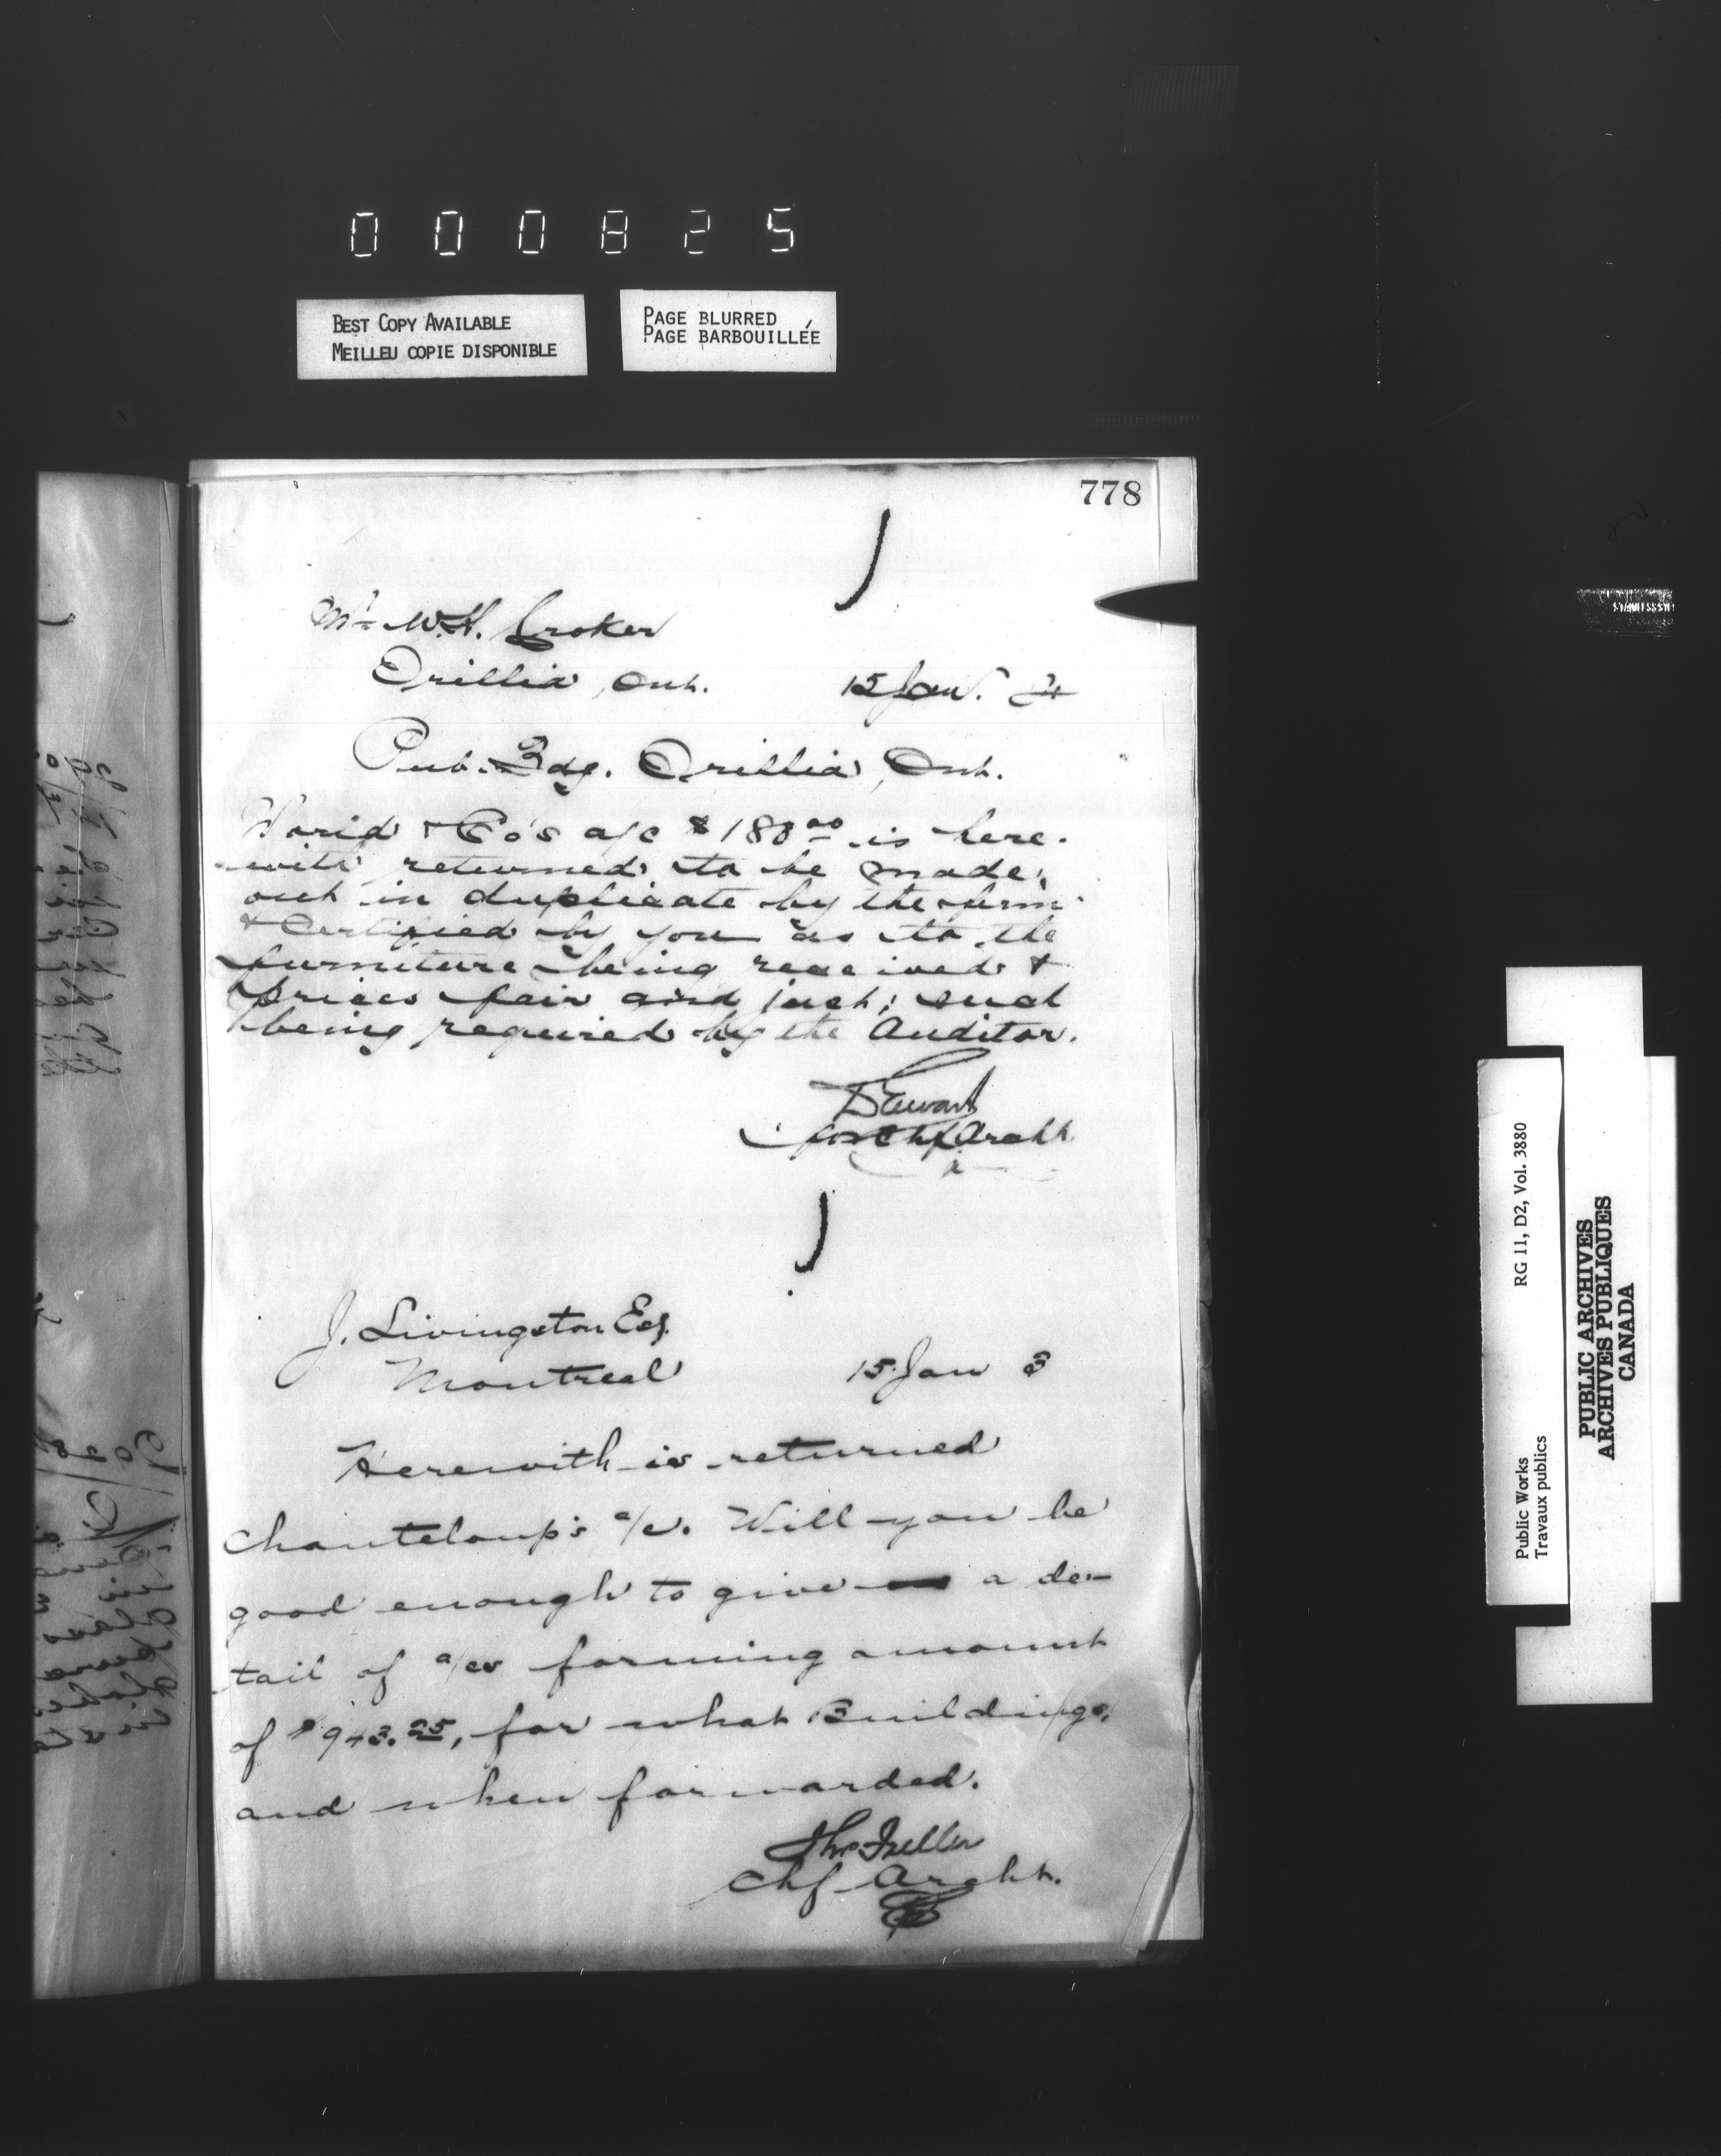 000825
BEST COPY AVAILABLE
MEILLEU COPIE DISPONIBLE
PAGE BLURRED
PAGE BARBOUILLÉE
778
Mr. W.H. Croker
Orillia, Ont. 15 Jan.
Pub. Bdg. Orillia, Ont.
& Co's a/c $180 00 is here-
with returned to be made
out in duplicate by the firm
& Certified by you as to the
furniture being received &
prices fair and just; such
being required by the Auditor.
D Ewart
for Chf Archt.
J. Livingston Esq.
Montreal 15 Jan 3
Herewith is returned
Chanteloup's a/c. Will you be
good enough to give a de-
tail of a/cs forming amount
of $943.25, for what Buildings,
and when forwarded.
Thos Fuller
Chf Archt.
Public Works RG 11, D2, Vol. 3880
Travaux publics
PUBLIC ARCHIVES
ARCHIVES PUBLIQUES
CANADA